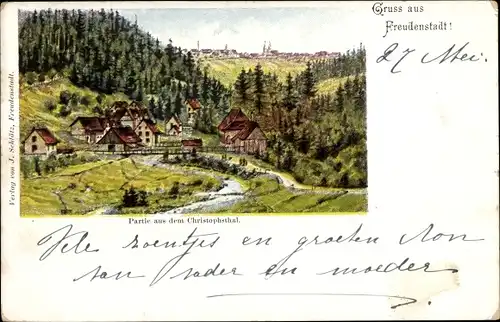 Gruss aus
Freudenstadt!
27 Mei.
Verlag von J. Schlötz, Freudenstadt.
Partie aus dem Christophsthal.
Vele zoentjes en groeten
van vader en moeder.